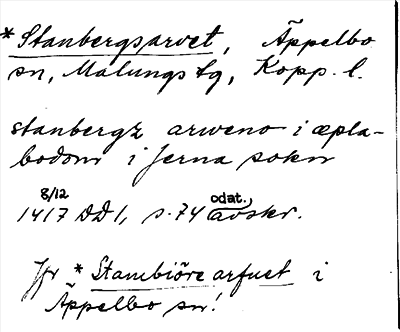 *Stanbergsarvet, Äppelbo
sn, Malungs tg, Kopp. l.
stanbergz arweno i æpla-
bodom i Jerna sokn
8/12 odat.
1417 DD 1, s. 74 avskr.
Jfr *Stambiöre arfuet i
Äppelbo sn!